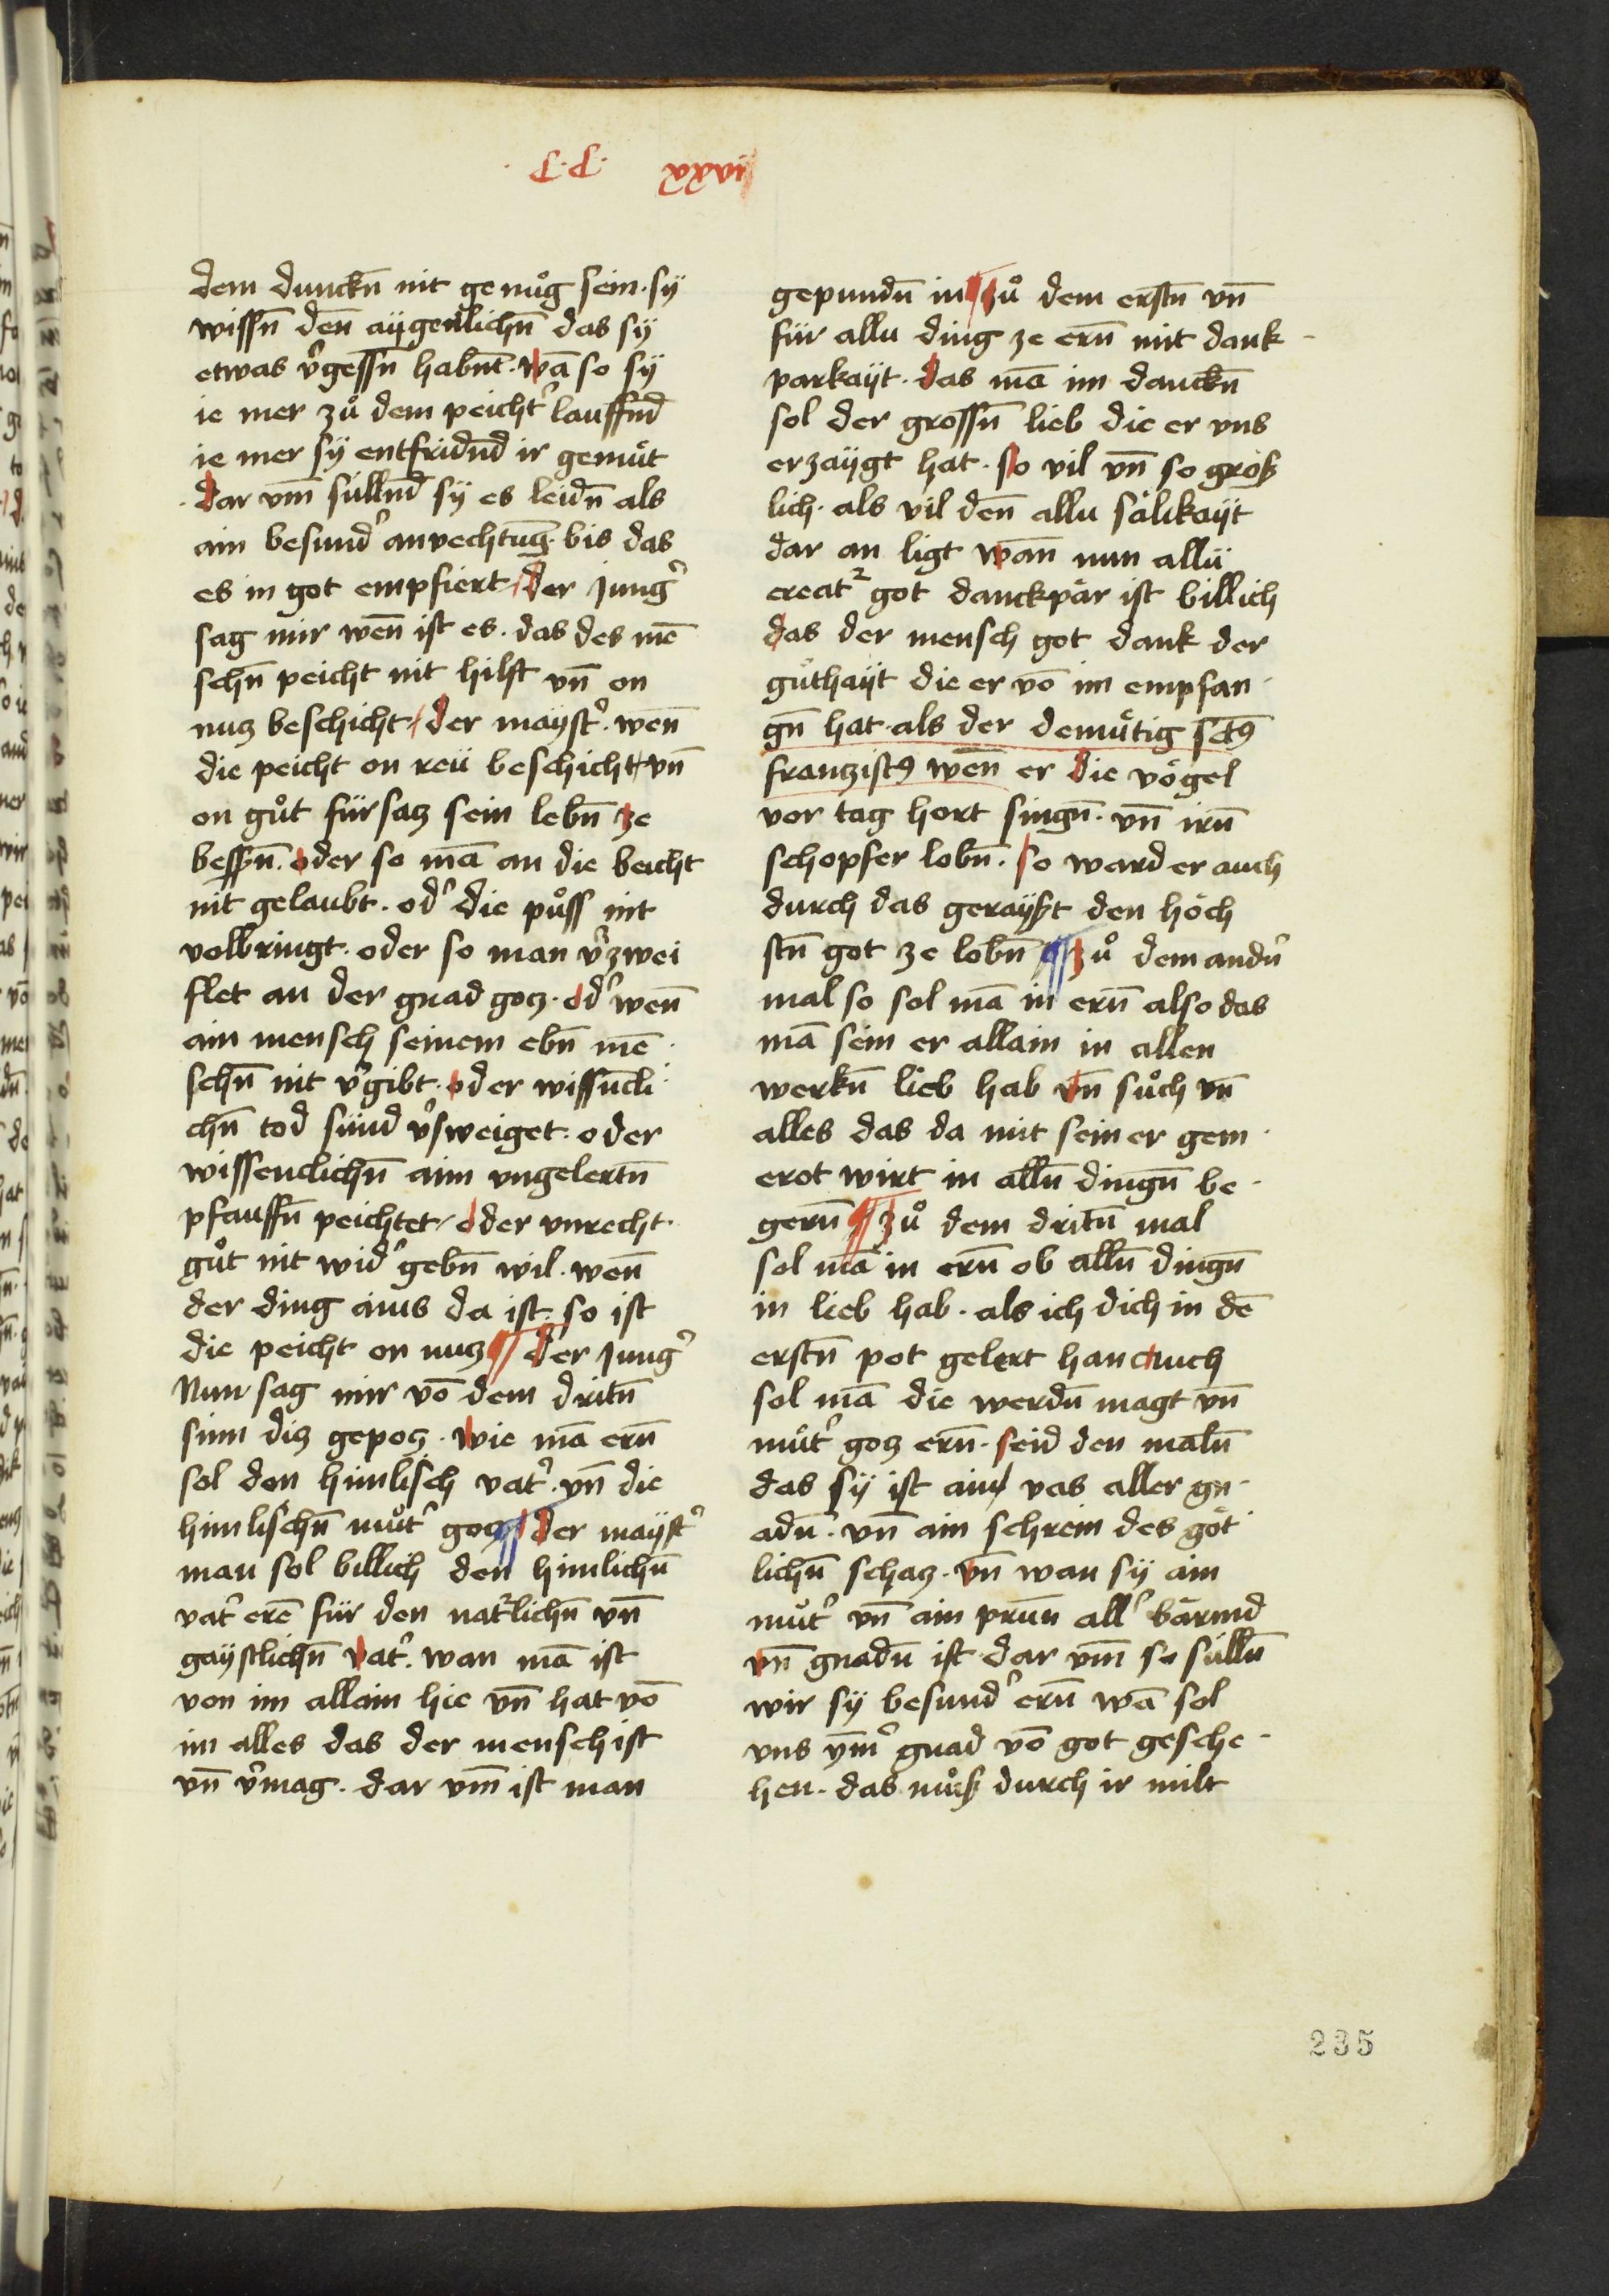 ·C·C· xxxvii
dem dunckn̄ nit genuͦg sein · sy̎
wissn̄ den̄ ay̎genlichn̄ das sy̎
etwas v̓gessn̄ habn̄t · wā so sy̎
ie mer zuͦ dem peicht̓ lauffnd̄
ie mer sy̎ entfridnd̄ ir gemuͤt
· dar vm̄ süllnd̄ sy̎ es leidn̄ als
ain besund̓ anvechtunḡ · bis das
es in got empfiert / der jung̓
sag mir wen̄ ist es · das des mē
schn̄ peicht nit hilft vn̄ on
nuz beschicht / der may̎st̓ · wen̄
die peicht on reü beschicht / vn̄
on guͦt für saz sein lebn̄ ze
bessn̄ · oder so mā an die beicht
nit gelaubt · od̓ die puͦss nit
volbringt · oder so man v̓zwei
flet an der gnad goz · od̓ wen̄
ain mensch seinem ebn̄ mē ·
schn̄ nit v̓gibt · oder wissn̄cli ·
chn̄ tod sünd v̓sweiget · oder
wissenclichn̄ aim vngelertn̄
pfauffn̄ peichtet / oder vnrecht ·
guͦt nit wid̓ gebn̄ wil · wen̄
der ding ains da ist · so ist
die peicht on nuz ¶ der jung̓
Nun sag mir vō dem dritn̄
sinn diz gepoz · wie mā ern̄
sol den himlisch vat̓ · vn̄ die
himlischn̄ muͦt̓ goz ¶ der may̎st̓
man sol billich den himlichn̄
vat̓ erē für den nat̓lichn̄ vn̄
gay̎stlichn̄ vat̓ · wan mā ist
von im allain hie vn̄ hat vō
im alles das der mensch ist
vn̄ v̓mag · dar vm̄ ist man
gepundn̄ in ¶ zuͦ dem erstn̄ vn̄
für allu ding ze ern̄ mit dank ·
parkay̎t · das mā im danckn̄
sol der grossn̄ lieb die er vns
erzay̎gt hat · so vil vn̄ so größ
lich · als vil den̄ allu sälikay̎t
dar an ligt wan̄ nun allü
creat² got danckpär ist billich
das der mensch got dank der
guͤthay̎t die er vō im empfan ·
gn̄ hat · als der demuͤtig sct̄9
franzist9 wen̄ er die vögel
vor tag hort singn̄ · vn̄ irn̄
schopfer lobn̄ · so ward er auch
durch das geray̎ßt den höch
stn̄ got ze lobn̄ ¶ zuͦ dem andn̓
mal so sol mā in ern̄ also das
mā sein er allain in allen
werkn̄ lieb hab vn̄ suͦch vn̄
alles das da mit sein er gem ·
erot wirt in alln̄ dingn̄ be ·
gern̄ ¶ zuͦ dem dritn̄ mal
sol mā in ern̄ ob alln̄ dingn̄
in lieb hab · als ich dich in dē
erstn̄ pot gelert han auch
sol mā die werdn̄ magt vn̄
muͦt̓ goz ern̄ · seid den maln̄
das sy̎ ist ain vas aller gn ·
adn̄ · vn̄ ain schrein des göt ·
lichn̄ schaz · vn̄ wan sy̎ ain
muͦt̓ vn̄ ain prun̄ all̓ bärmd
vn̄ gnadn̄ ist · dar vm̄ so sülln̄
wir sy̎ besund̓ ern̄ wā sol
vns ym̄̓ gnad vō got gesche ·
hen · das muͦß durch ir milt
235